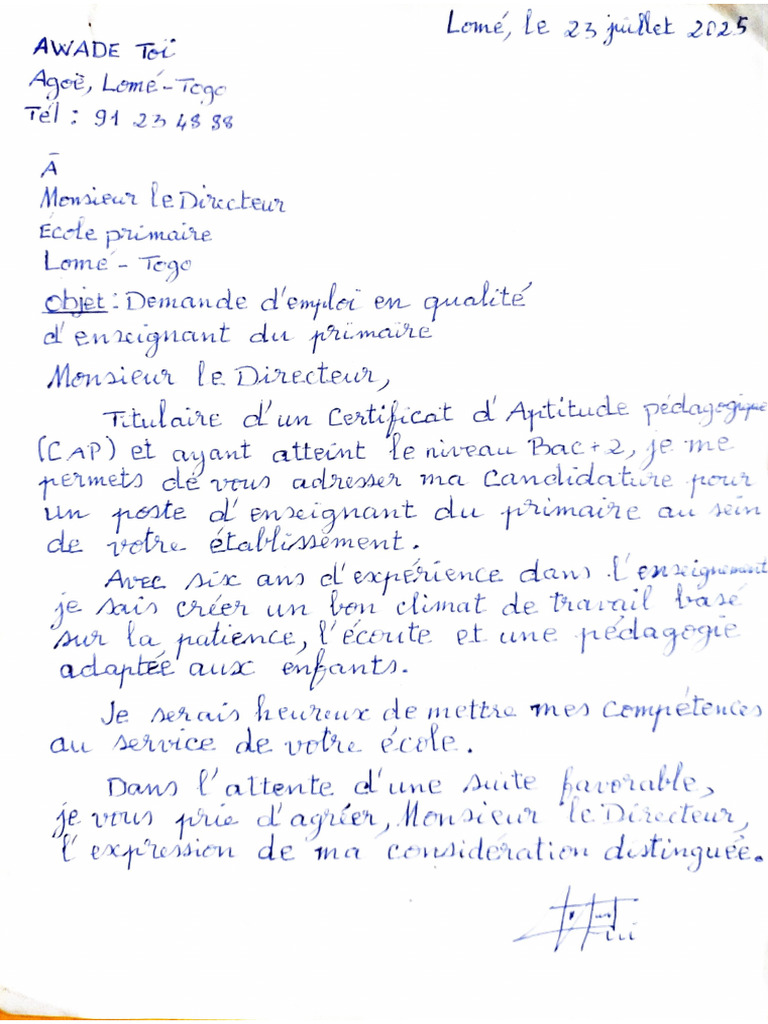 Lomé, le 23 juillet 2025
AWADE Toï
Agoè, Lomé-Togo
Tél : 91 23 48 88
À
Monsieur le Directeur
École primaire
Lomé - Togo
Objet : Demande d'emploi en qualité
d'enseignant du primaire
Monsieur le Directeur,
Titulaire d'un Certificat d'Aptitude pédagogique
(CAP) et ayant atteint le niveau Bac+2, je me
permets de vous adresser ma candidature pour
un poste d'enseignant du primaire au sein
de votre établissement.
Avec six ans d'expérience dans l'enseignement
je sais créer un bon climat de travail basé
sur la patience, l'écoute et une pédagogie
adaptée aux enfants.
Je serais heureux de mettre mes compétences
au service de votre école.
Dans l'attente d'une suite favorable,
je vous prie d'agréer, Monsieur le Directeur,
l'expression de ma considération distinguée.